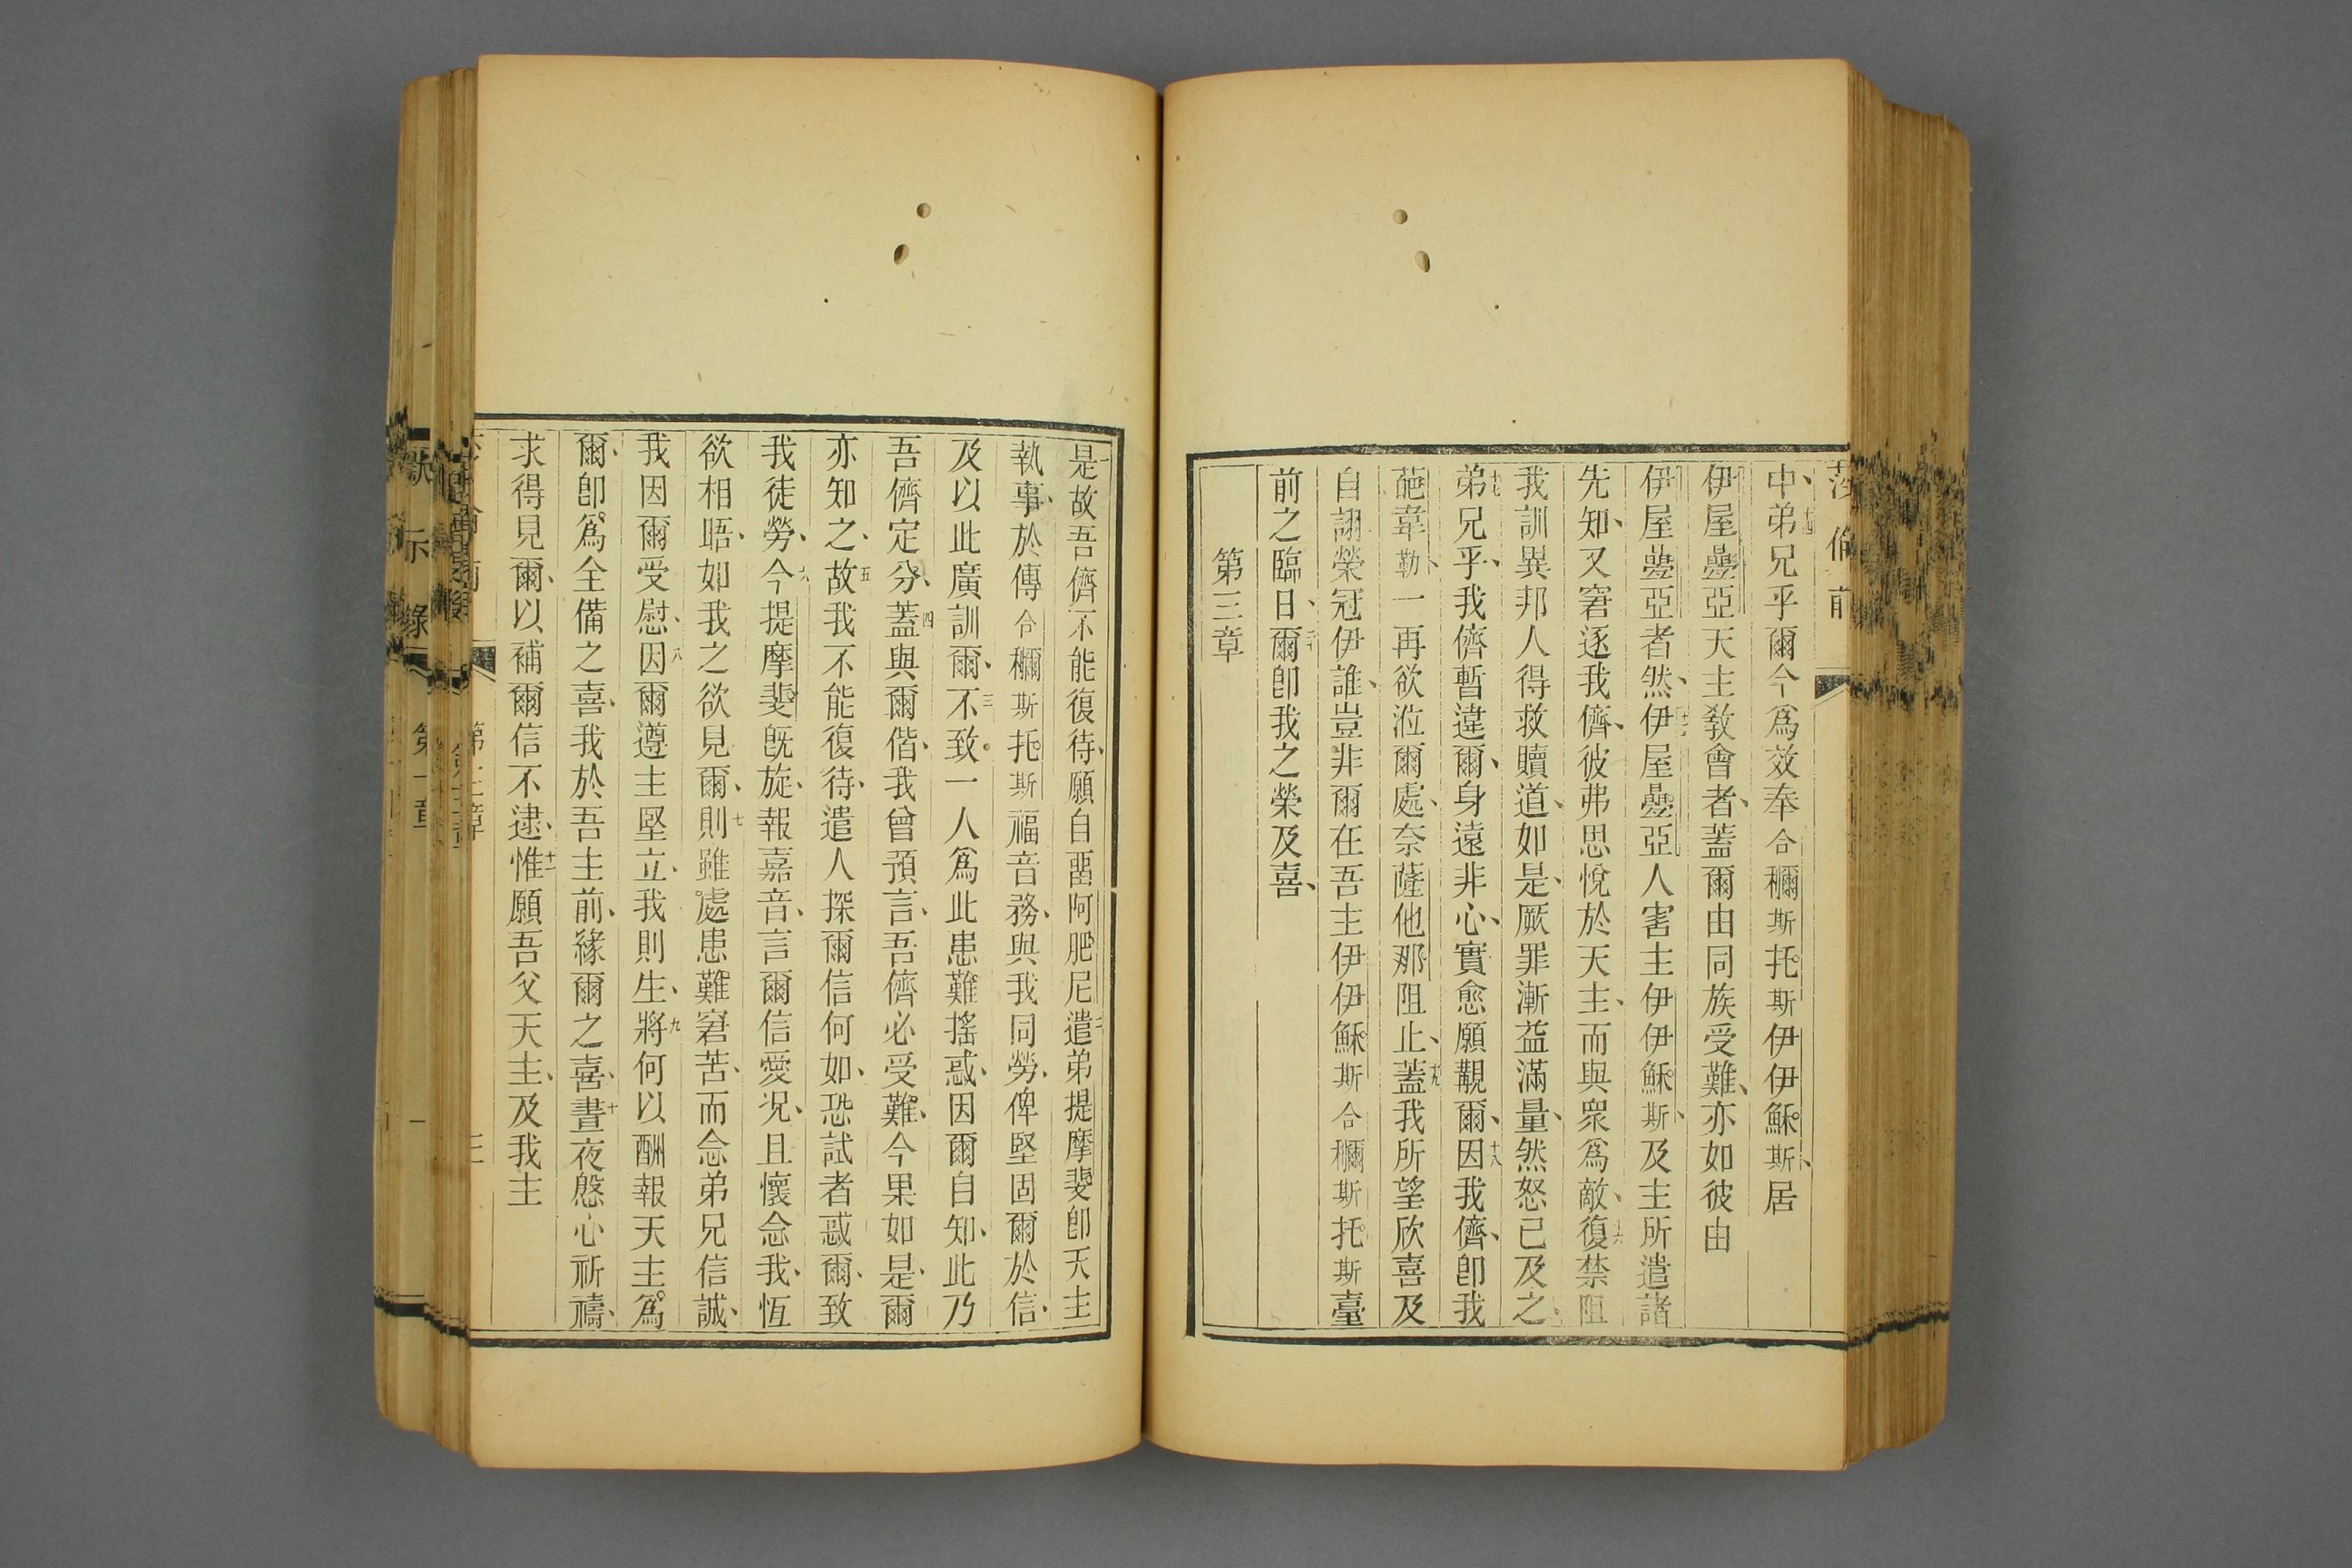 中、十四弟兄乎爾今爲效奉合穪斯托斯伊伊穌斯、居
伊屋疊亞天主敎會者、蓋爾由同族受難、亦如彼由
伊屋疊亞者然、十五伊屋疊亞人害主伊伊穌斯、及主所遣諸
先知、又窘逐我儕、彼弗思悅於天主、而與衆爲敵、十六復禁阻
我訓異邦人得救贖道、如是、厥罪漸益滿量、然怒已及之、
十七弟兄乎、我儕暫違爾、身遠非心、實愈願覩爾、十八因我儕、卽我
葩韋勒、一再欲涖爾處、奈薩他那阻止、十九蓋我所望欣喜及
自詡榮冠伊誰、豈非爾在吾主伊伊穌斯合穪斯托斯臺
前之臨日、二十爾卽我之榮及喜、
第三章
一是故吾儕不能復待、願自畱阿肥尼二遣弟提摩斐卽天主
執事、於傳合穪斯托斯福音務、與我同勞、俾堅固爾於信、
及以此廣訓爾、三不致一人爲此患難搖惑、因爾自知、此乃
吾儕定分、四蓋與爾偕、我曾預言、吾儕必受難、今果如是、爾
亦知之、五故我不能復待、遣人探爾信何如、恐試者惑爾、致
我徒勞、六今提摩斐旣旋、報嘉音、言爾信愛况、且懷念我、恆
欲相晤、如我之欲見爾、七則雖處患難窘苦、而念弟兄信誠、
我因爾受慰、八因爾遵主堅立、我則生、九將何以酬報天主爲
爾、卽爲全備之喜、我於吾主前、緣爾之喜、十晝夜慇心祈禱、
求得見爾、以補爾信不逮、十一惟願吾父天主、及我主
第三章
三
默示錄
第一章
一